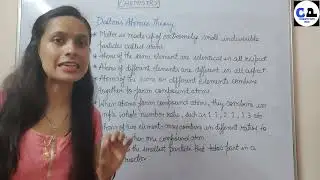 CHEMISTRY
Daltons Atomic Theory
Matter is made up of extremely small indivisible
particles called atoms
Atoms of the same element are identical in all respect
Atoms of different elements are different in all aspect
Atoms of the same or different elements combine
together to form compound atoms
When atoms form compound atoms, they combine in
whole number ratio, such as 1:1, 2:1, 1:3 etc
Atoms of two element may combine in different ratios to
more than one compound atom
is the smallest particle that takes part in a